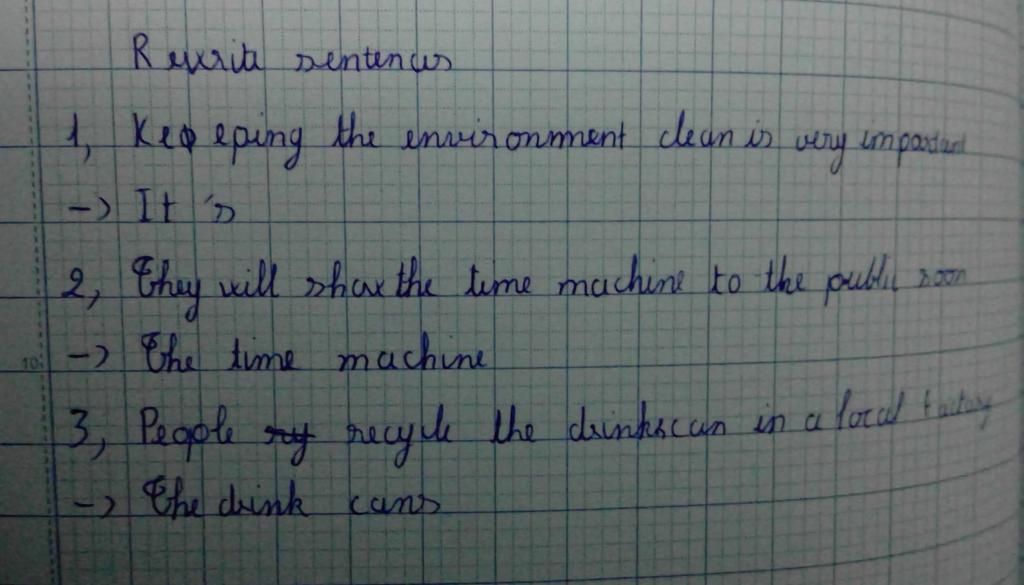 Rewrite sentences
1, Keepeping the environment clean is very important
-> It 's
2, They will show the time machine to the public soon
-> The time machine
10
3, People recycle the drinkscan in a local factory
-> The drink cans